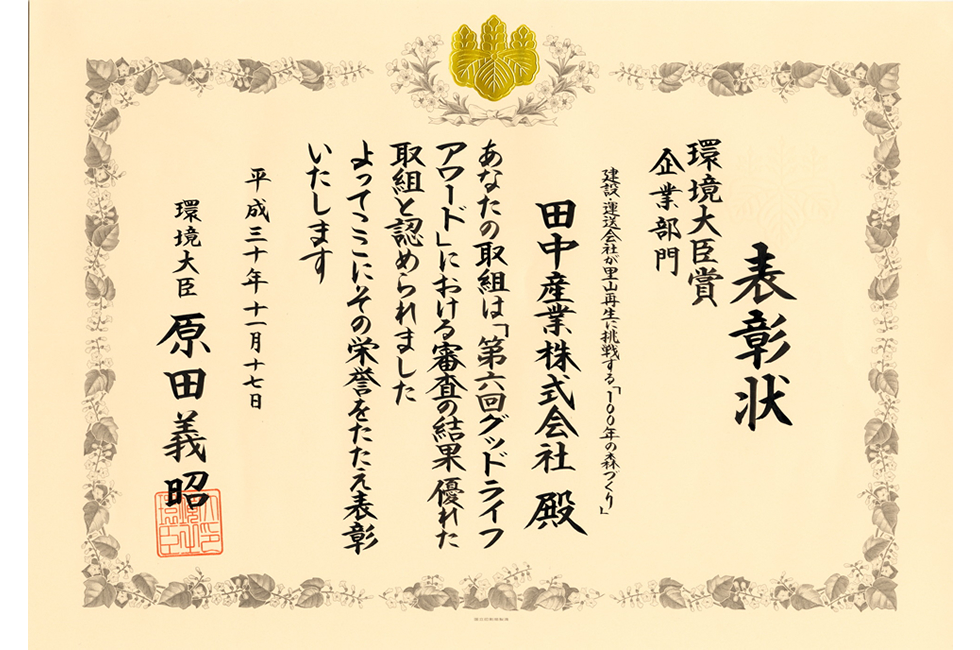 表彰状
環境大臣賞
企業部門
建設・運送会社が里山再生に挑戦する「100年の森づくり」
田中産業株式会社 殿
あなたの取組は「第六回グッドライフ
アワード」における審査の結果 優れた
取組と認められました
よってここにその栄誉をたたえ表彰
いたします
平成三十年十一月十七日
環境大臣 原田義昭